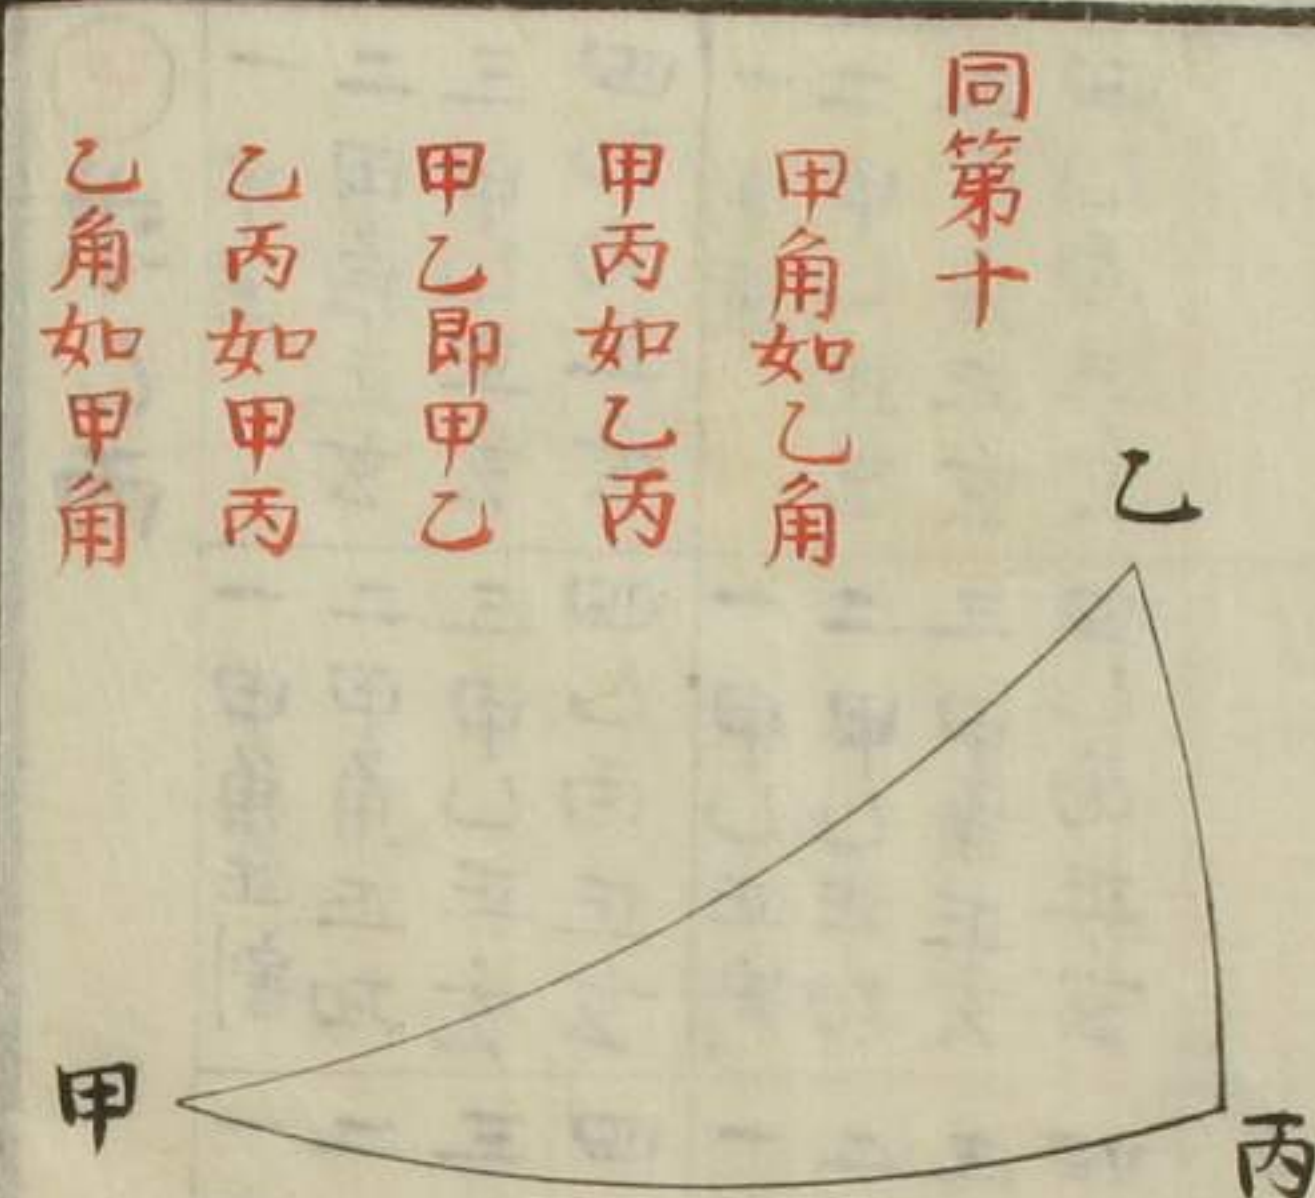 同第十
甲角如乙角
甲丙如乙丙
甲乙即甲乙
乙丙如甲丙
乙角如甲角
乙
甲
丙